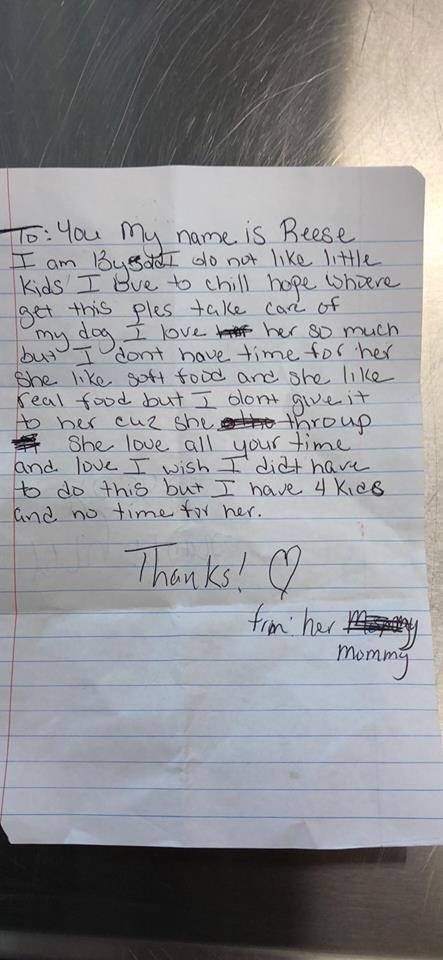 To: You My name is Reese
I am 13ysold I do not like little
kids I love to chill hope whoere
get this ples take care of
my dog I love her so much
but I dont have time for her
She like soft food and she like
real food but I dont give it
to her cuz she throup
She love all your time
and love I wish I didt have
to do this but I have 4 kids
and no time for her.
Thanks! ♡
frm: her
mommy